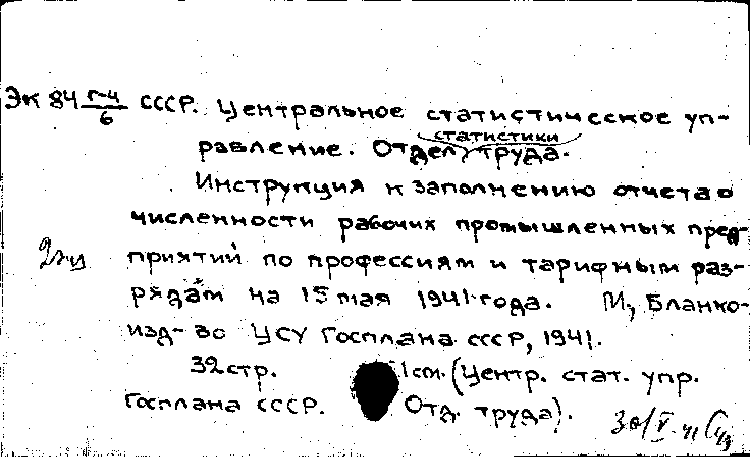 Эк 84 г-4/6 СССР. Центральное статистическое уп-
равление. Отдел статистики труда.
Инструкция к заполнению отчета о
численности рабочих промышленных пред-
2экз приятий по профессиям и тарифным раз-
рядам на 15 мая 1941 года. М, Бланко-
изд-во ЦСУ Госплана СССР, 1941.
32 стр. 1 см. (Центр. стат. упр.
Госплана СССР. Отд. труда).
30/V-41